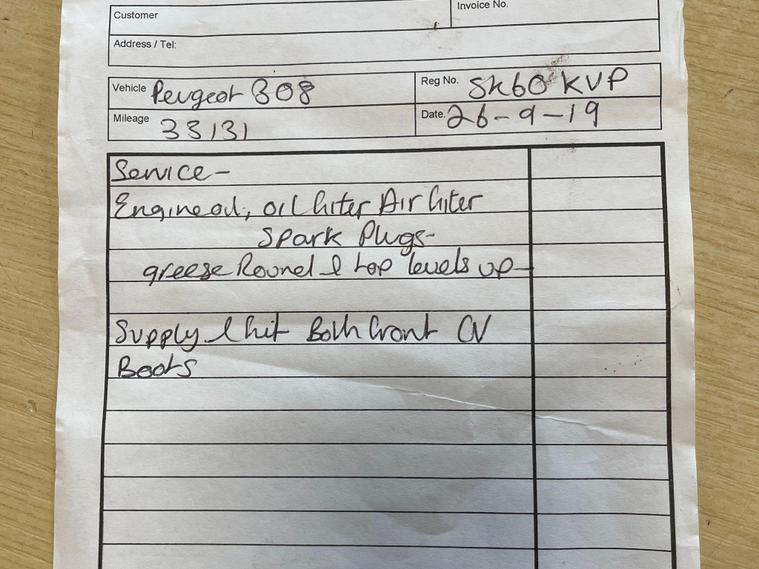 Customer
Invoice No.
Address / Tel:
Vehicle Peugeot 308
Reg No. SK60 KVP
Mileage 33131
Date. 26-9-19
Service-
Engine oil, oil filter Air filter
Spark Plugs-
greese Round & top levels up-
Supply & fit Both front CV
Boots